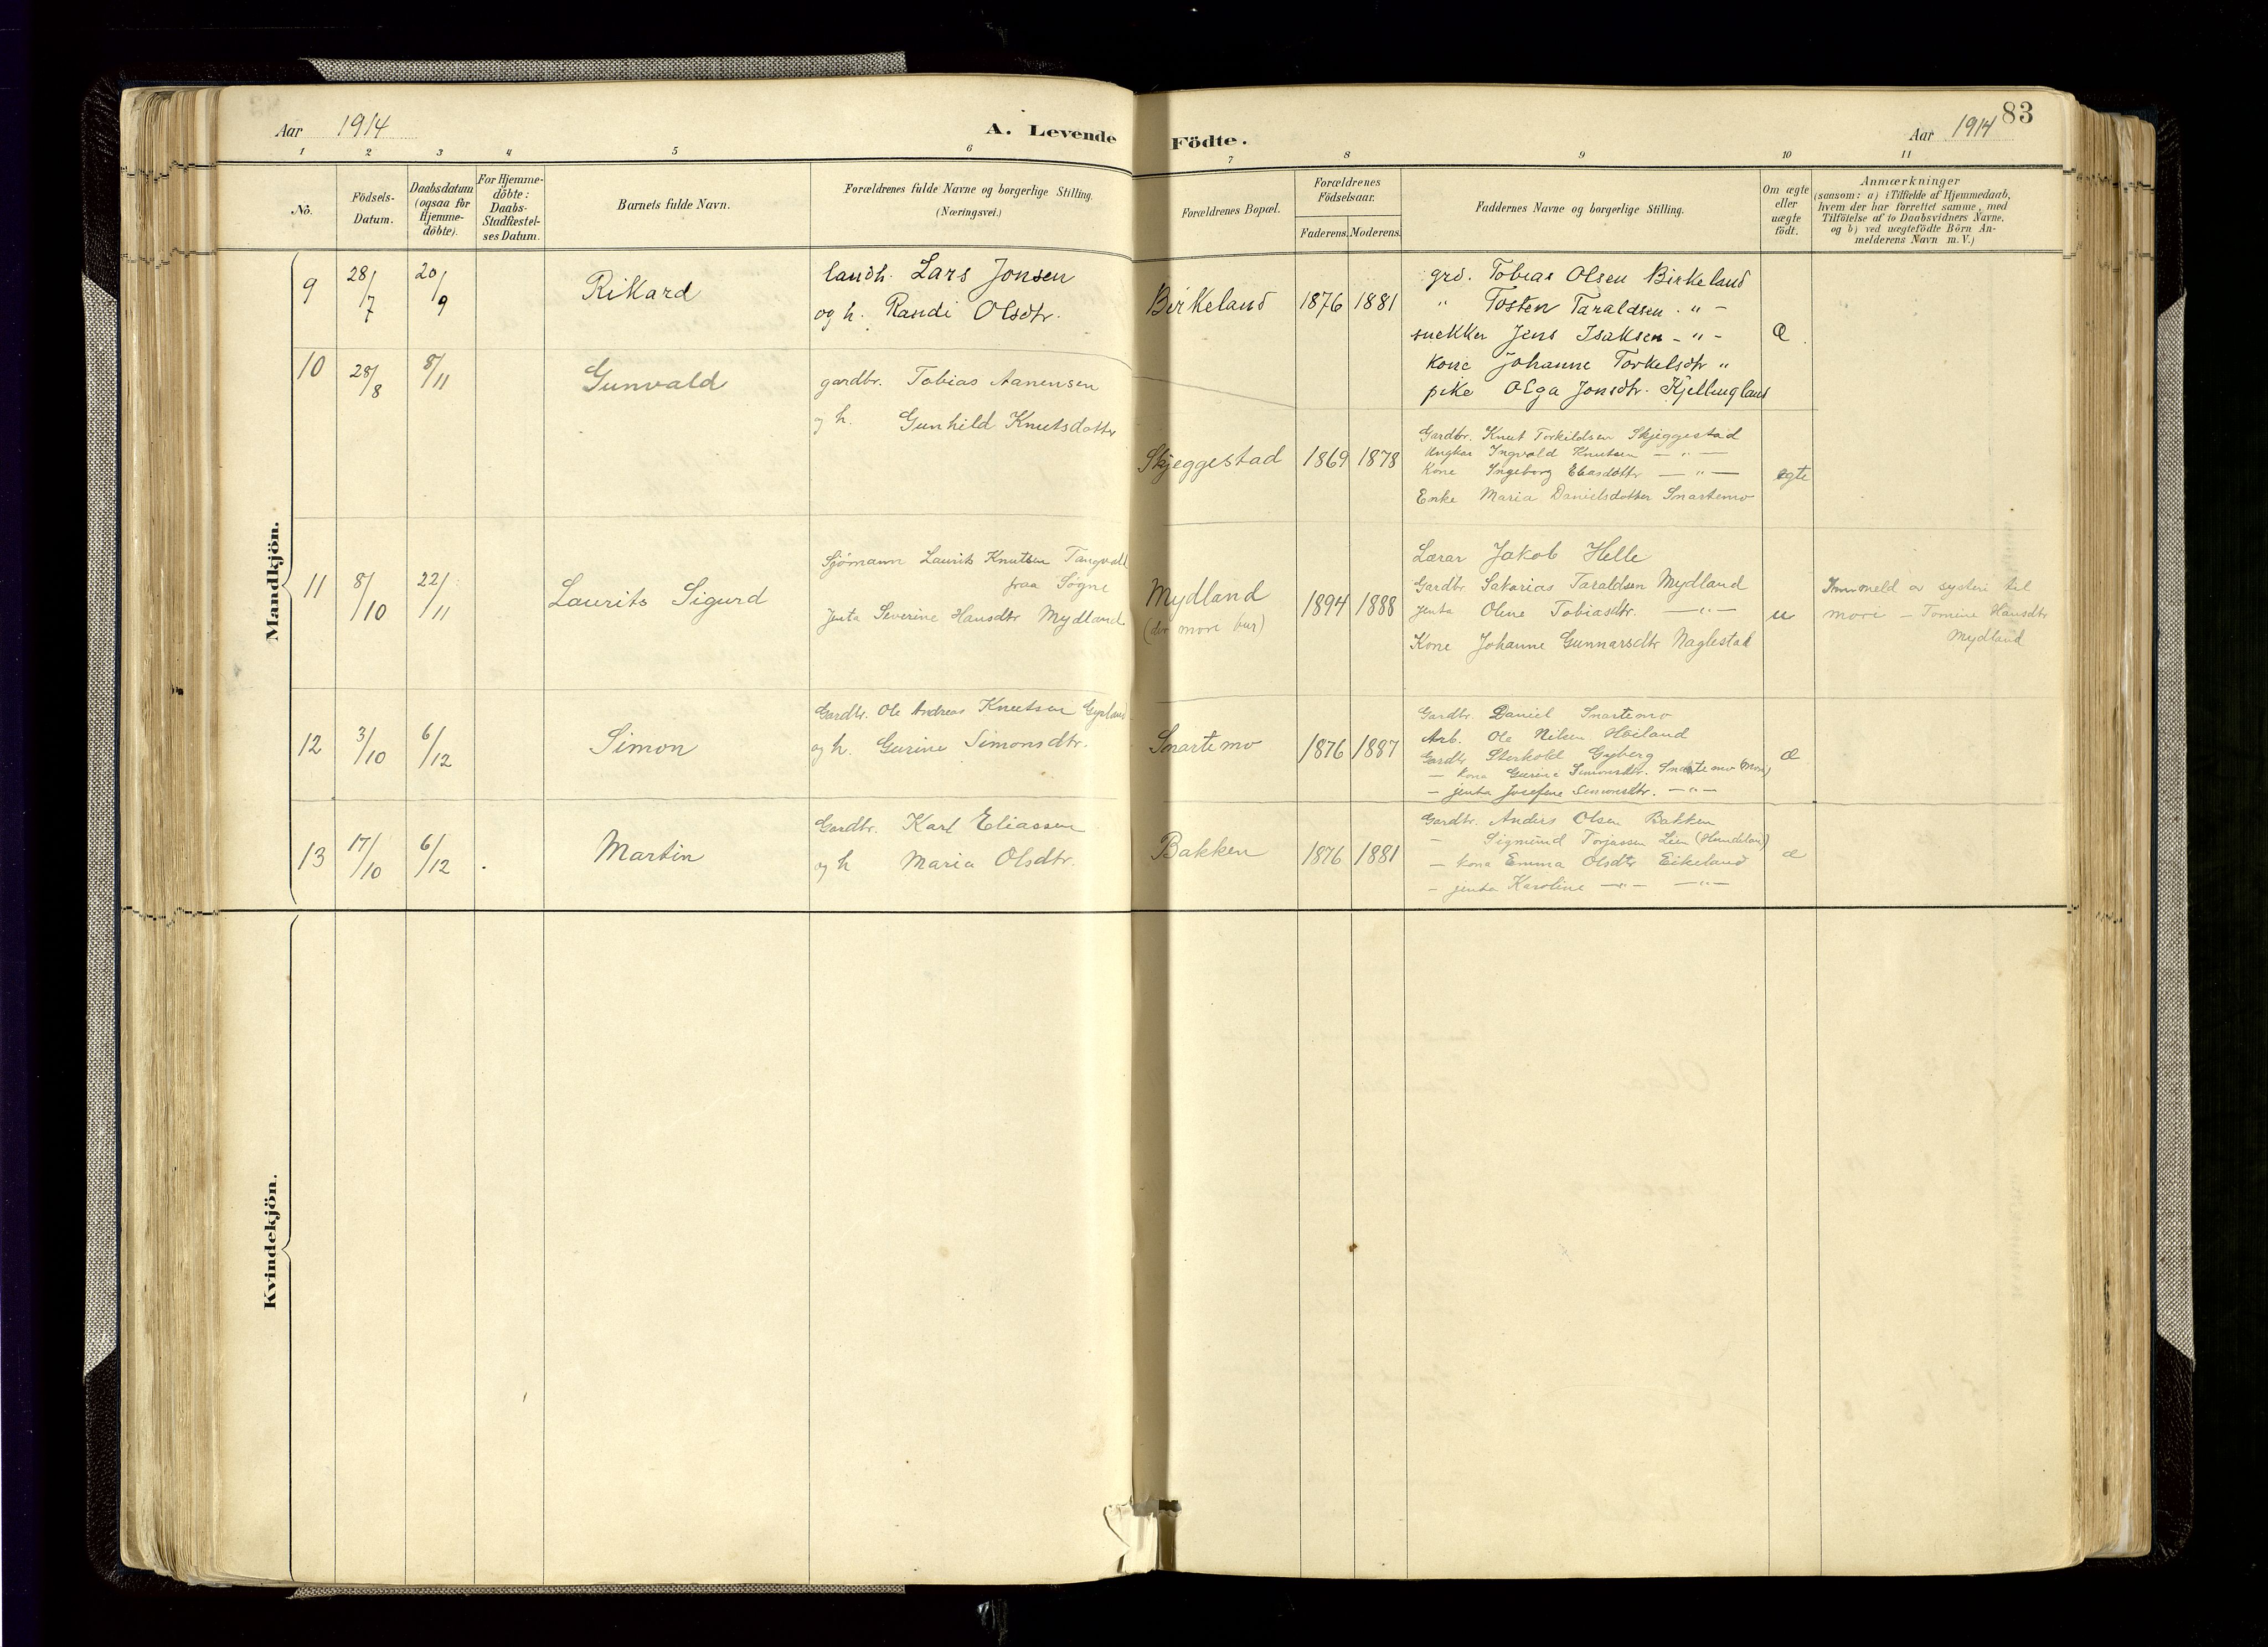 Aar 1914
A. Levende Födte.
Aar 1914
83
1 2 3 4 5 6 7 8 9 10 11
No.
Födsels-
Datum.
Daabsdatum
(ogsaa for
Hjemme-
döbte).
For Hjemme-
döbte:
Daabs-
Stadfæstel-
ses Datum.
Barnets fulde Navn.
Forældrenes fulde Navne og borgerlige Stilling.
(Næringsvei.)
Forældrenes Bopæl.
Forældrenes
Födselsaar.
Faderens. Moderens.
Faddernes Navne og borgerlige Stilling.
Om ægte
eller
uægte
födt.
Anmærkninger
(saasom: a) i Tilfælde af Hjemmedaab,
hvem der har forrettet samme, med
Tilföielse af to Daabsvidners Navne,
og b) ved uægtefödte Börn An-
melderens Navn m. V.)
Mandkjön.
9
28/7
20/9
Rikard
landh. Lars Jonsen
og h. Randi Olsdtr.
Birkeland
1876 1881
grd. Tobias Olsen Birkeland
" Tosten Taraldsen - " -
snekker Jens Isaksen - " -
kone Johanne Torkelsdtr "
pike Olga Jonsdtr. Kjellingland
Æ.
10
28/8
8/11
Gunvald
gardbr. Tobias Aanensen
og h. Gunhild Knutsdotter
Skjeggestad
1869 1878
Gardbr. Knut Torkildsen Skjeggestad
Ungkar Ingvald Knutsen — " —
Kone Ingeborg Eliasdottr — " —
Enke Maria Danielsdotter Snartemo
egte
11
8/10
22/11
Laurits Sigurd
Sjømann Laurits Knutsen Tangvall
fraa Søgne
Jenta Severine Hansdtr Mydland
Mydland
(der more bur)
1894 1888
Lærar Jakob Helle
Gardbr Sakarias Taraldsen Mydland
jenta Olene Tobiasdtr. — " —
Kone Johanne Gunnarsdtr Naglestad
u
Innmeld av systeri til
mori — Tomine Hansdtr
Mydland
12
3/10
6/12
Simon
Gardbr. Ole Andreas Knutsen Gyland
og h. Gurine Simonsdtr.
Snartemo
1876 1887
Gardbr. Daniel Snartemo
Arb. Ole Nilsen Høiland
Gardbr Gyberg
— kona Gurine Simonsdtr. Snartemo (Mori)
— jenta Josefine Simonsdtr. — " —
æ
13
17/10
6/12
Martin
Gardbr. Karl Eliassen
og h Maria Olsdtr.
Bakken
1876 1881
Gardbr. Anders Olsen Bakken
— Sigmund Torjussen Lien
— kona Emma Olsdtr Eikeland
— jenta Karoline — " — — " —
æ
Kvindekjön.